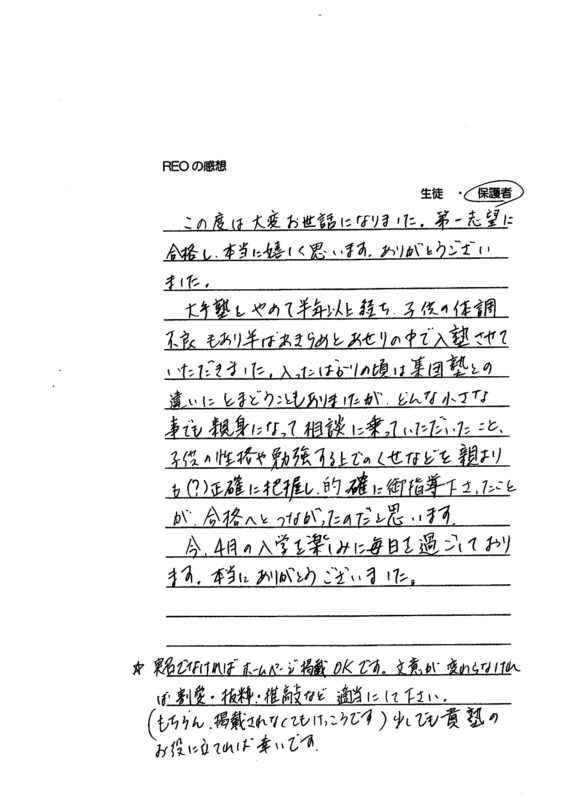 REOの感想
生徒 ・ 保護者
この度は大変お世話になりました。第一志望に
合格し、本当に嬉しく思います。ありがとうござい
ました。
大手塾をやめて半年以上経ち、子供の体調
不良もあり半ばあきらめとあせりの中で入塾させて
いただきました。入ったばかりの頃は集団塾との
違いにとまどうこともありましたが、どんな小さな
事でも親身になって相談に乗っていただいたこと、
子供の性格や勉強する上でのくせなどを親より
も(?)正確に把握し、的確に御指導下さったこと
が、合格へとつながったのだと思います。
今、4月の入学を楽しみに毎日を過ごしており
ます。本当にありがとうございました。
☆ 実名でなければホームページ掲載OKです。文意が変わらなけれ
ば割愛・抜粋・推敲など適当にして下さい。
(もちろん、掲載されなくてもけっこうです)少しでも貴塾の
お役に立てれば幸いです。